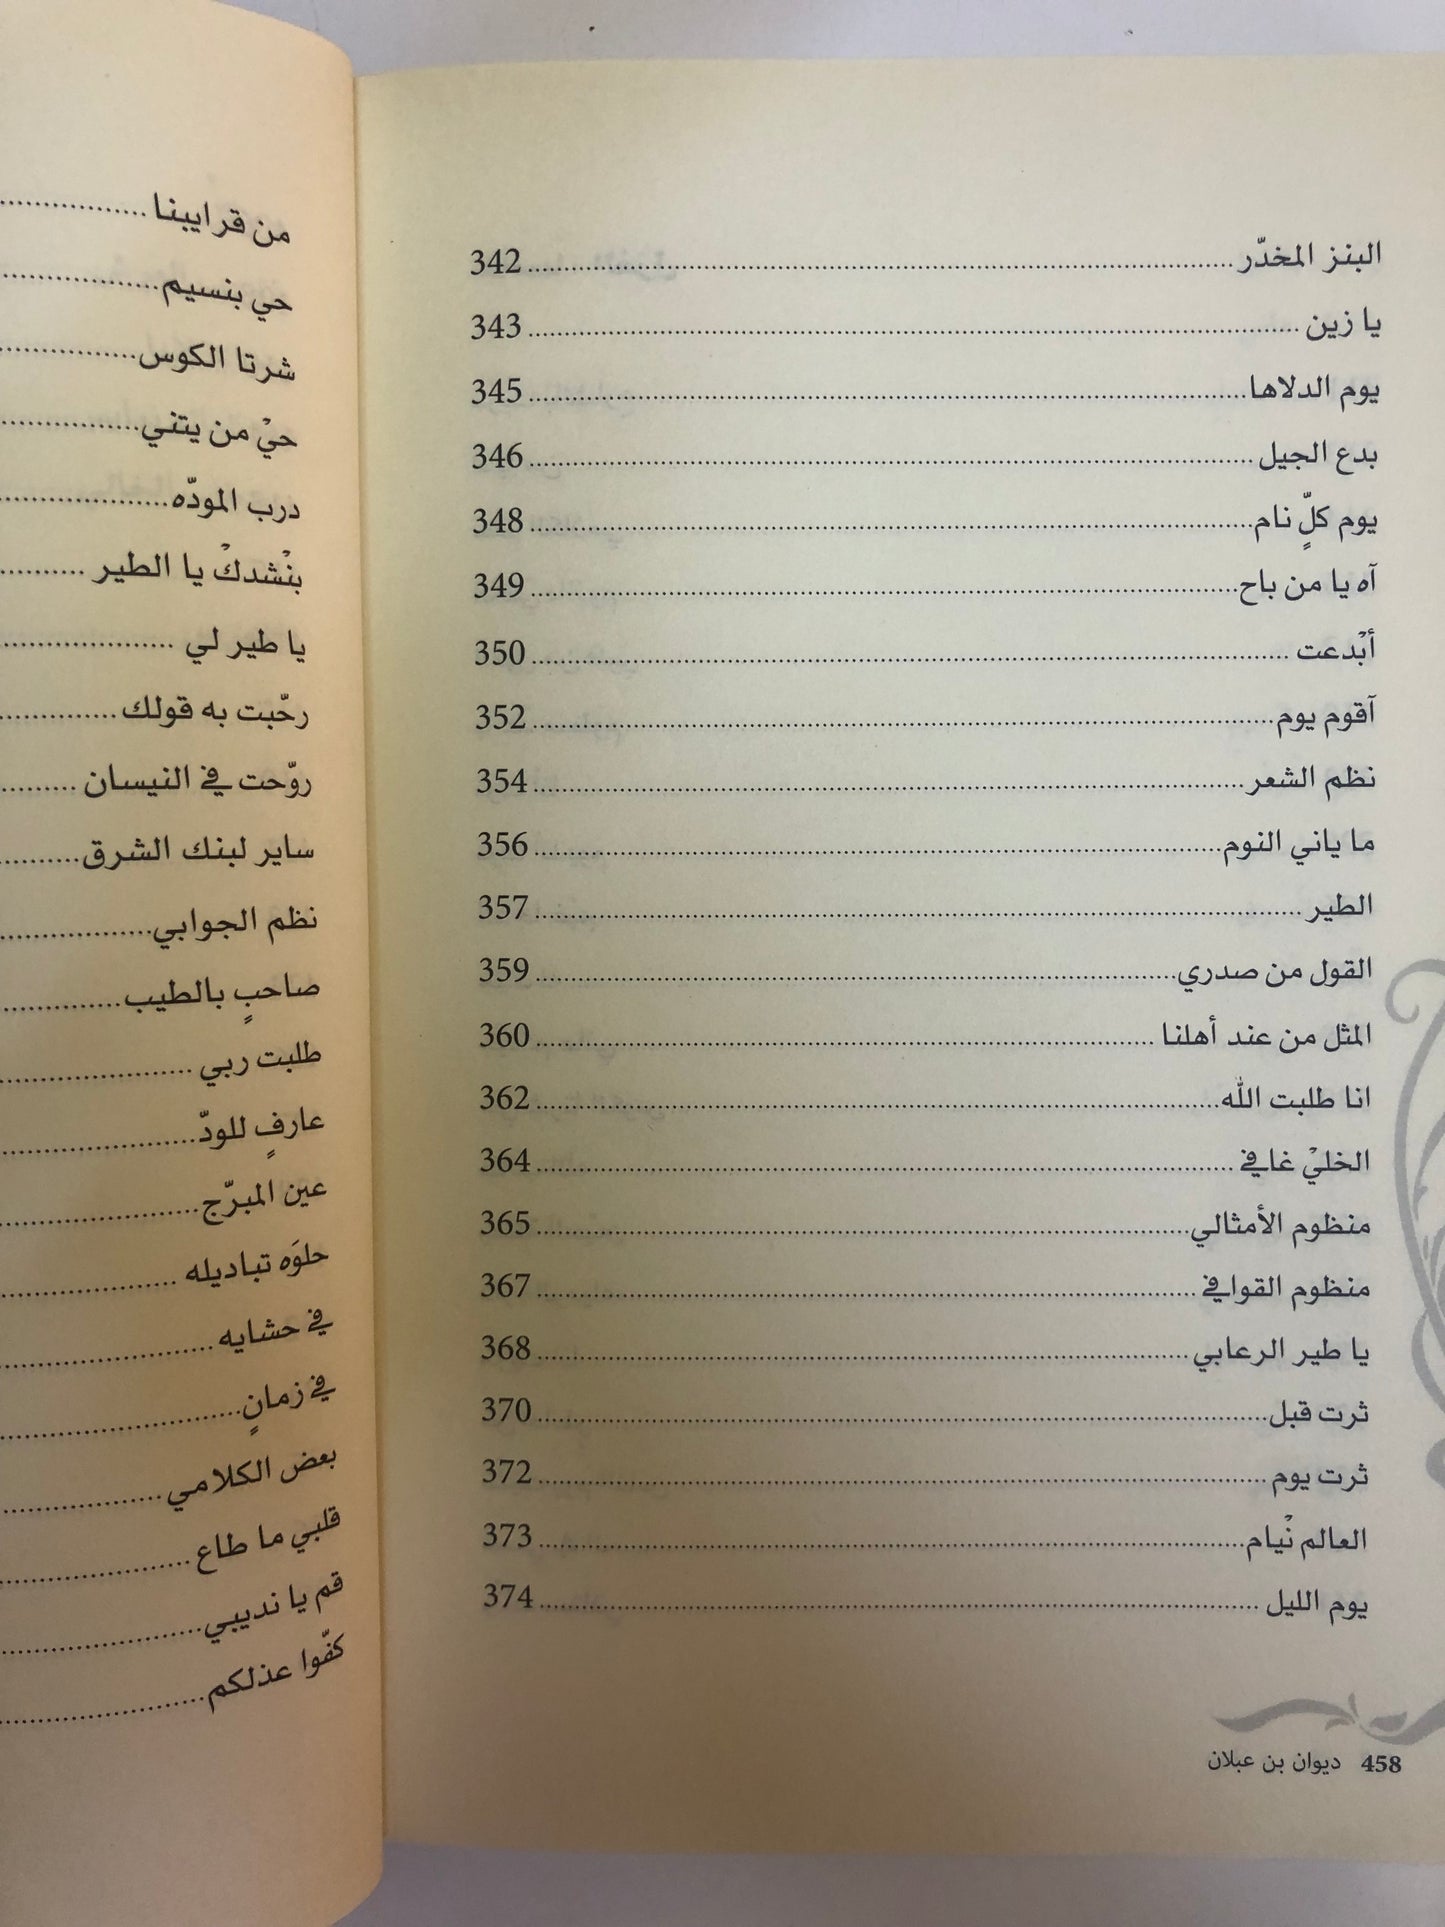 البنز المخدّر ........ 342
يا زين ........ 343
يوم الدلاها ........ 345
بدع الجيل ........ 346
يوم كلٍّ نام ........ 348
آه يا من باح ........ 349
أبْدعت ........ 350
آقوم يوم ........ 352
نظم الشعر ........ 354
ما ياني النوم ........ 356
الطير ........ 357
القول من صدري ........ 359
المثل من عند أهلنا ........ 360
انا طلبت الله ........ 362
الخليْ غافي ........ 364
منظوم الأمثالي ........ 365
منظوم القوافي ........ 367
يا طير الرعابي ........ 368
ثرت قبل ........ 370
ثرت يوم ........ 372
العالم نْيام ........ 373
يوم الليل ........ 374
458 ديوان بن عبلان
من قرايبنا ........
حي بنسيم ........
شرتا الكوس ........
حيْ من يتني ........
درب المودّه ........
بنْشدكْ يا الطير ........
يا طير لي ........
رحّبت به قولك ........
روّحت في النيسان ........
ساير لبنك الشرق ........
نظم الجوابي ........
صاحبٍ بالطيب ........
طلبت ربي ........
عارفٍ للودّ ........
عين المبرّج ........
حلوَه تباديله ........
في حشايه ........
في زمانٍ ........
بعض الكلامي ........
قلبي ما طاع ........
قم يا نديبي ........
كفّوا عذلكم ........